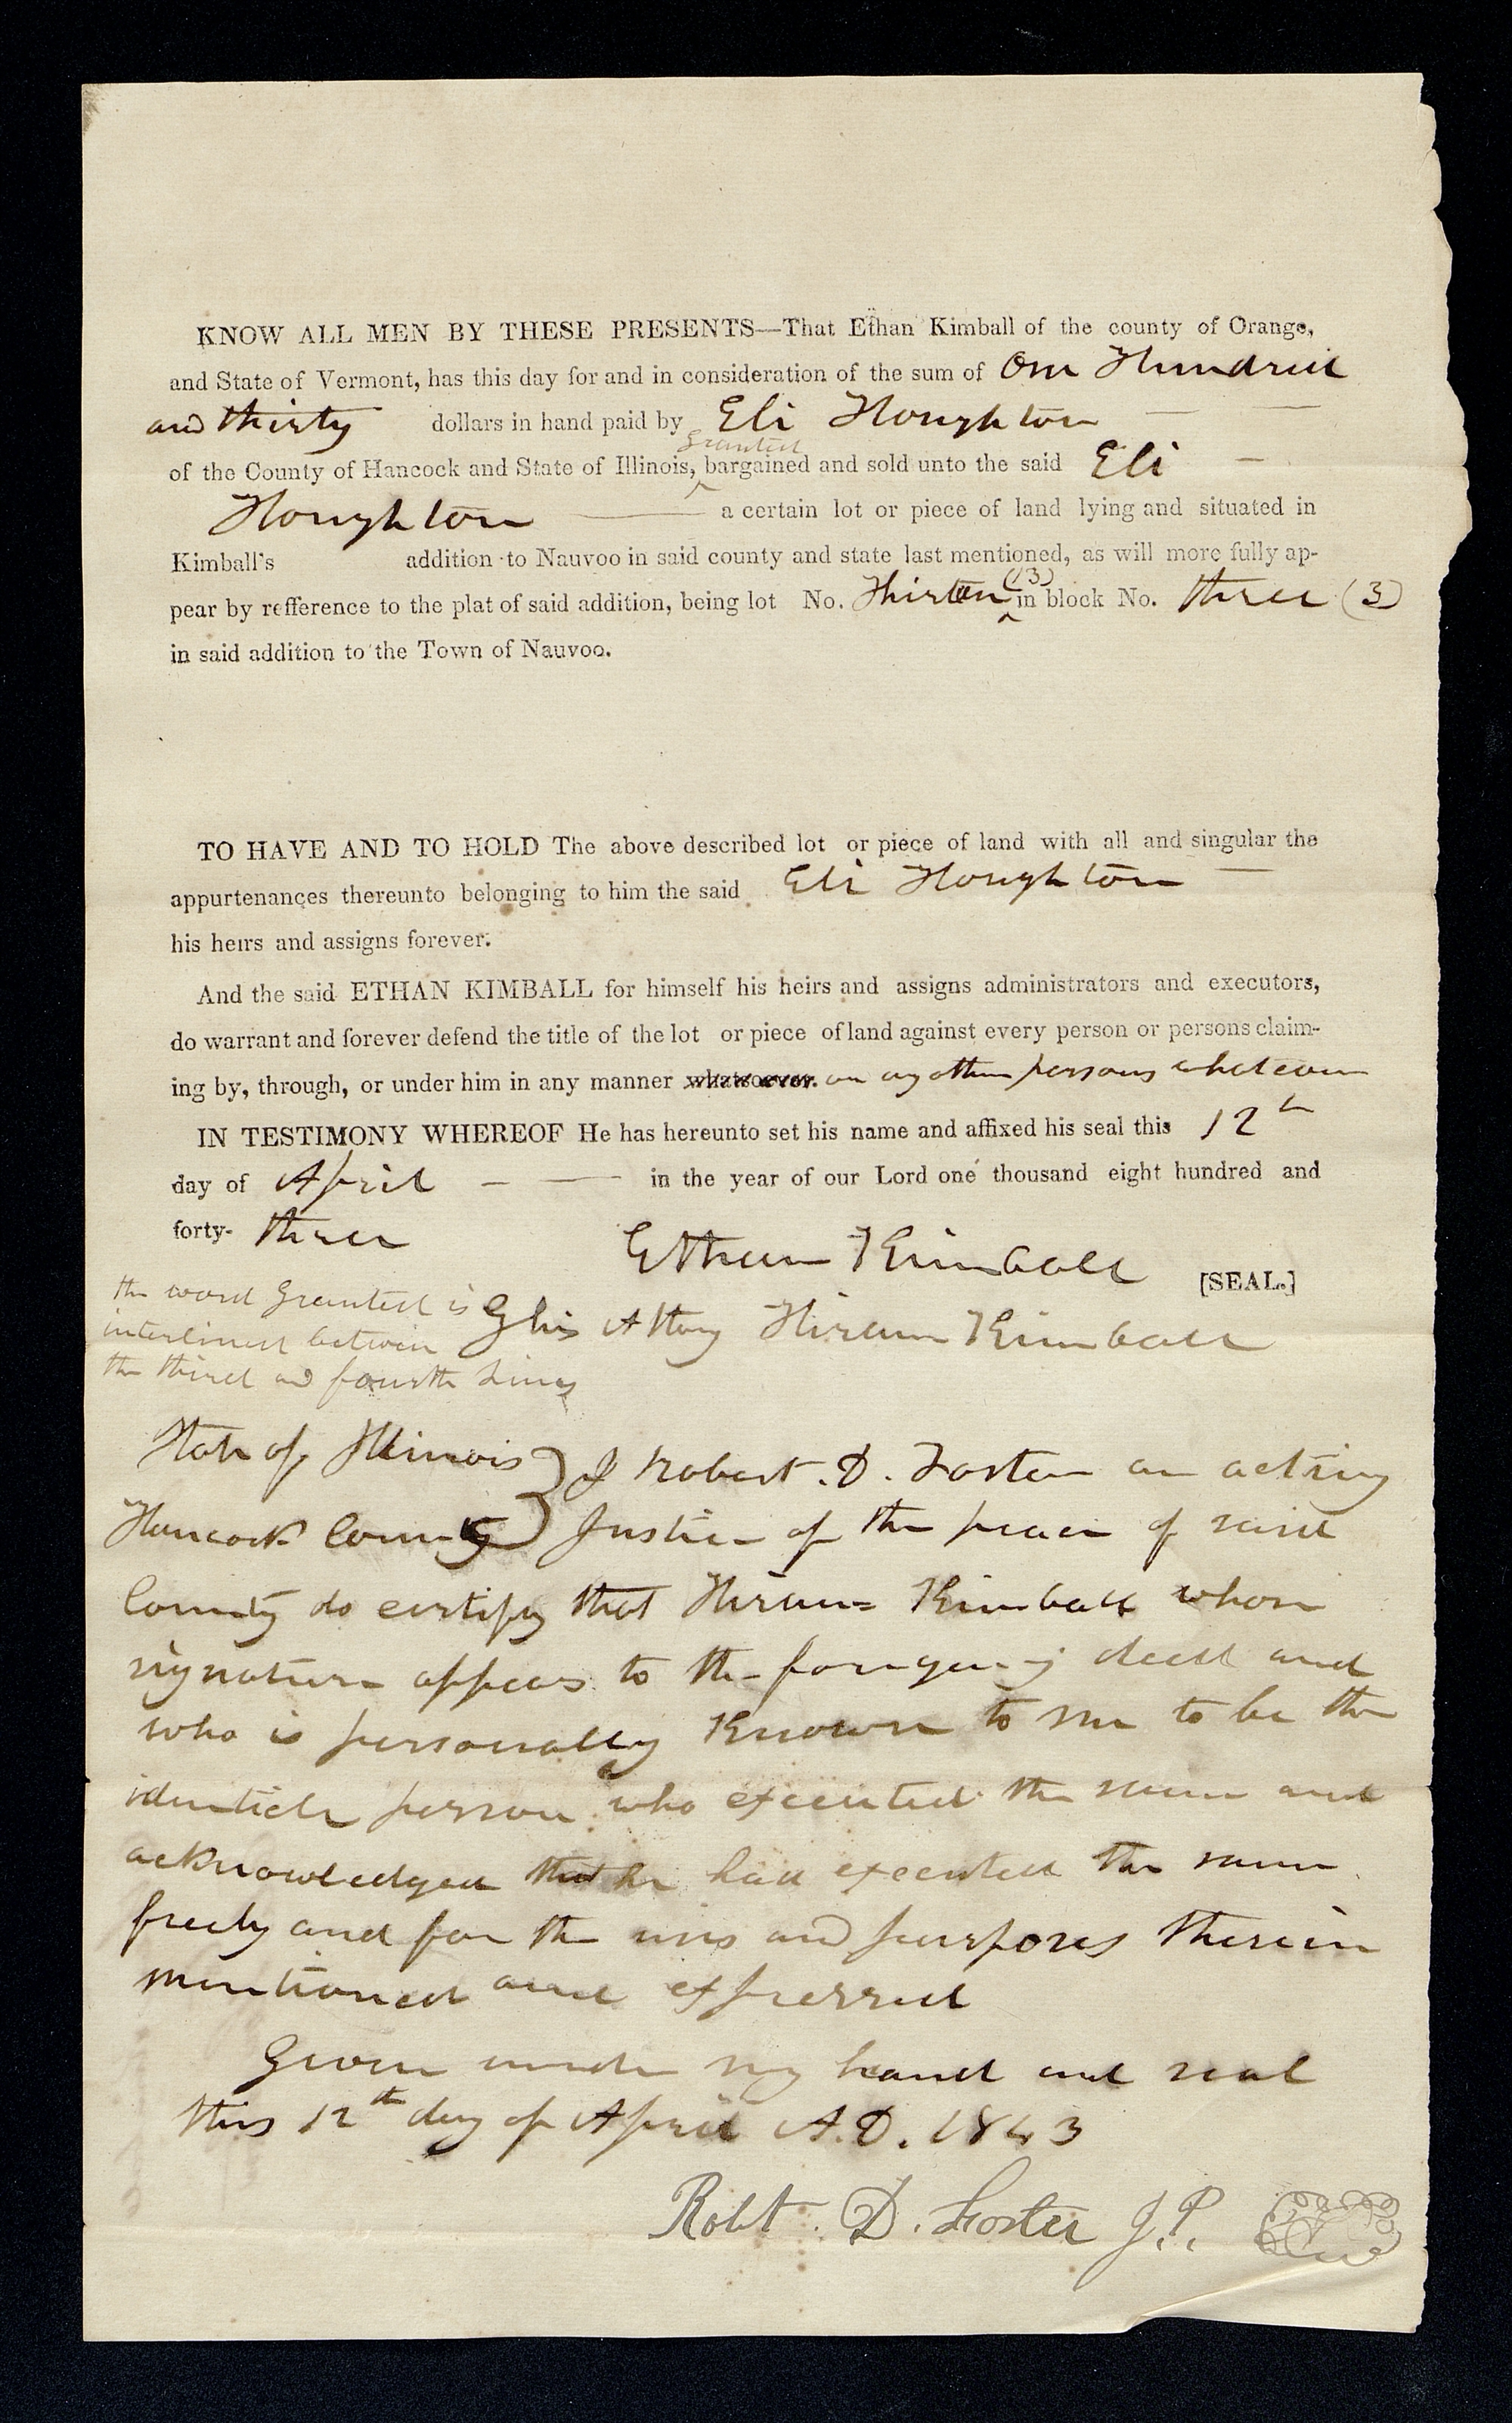 KNOW ALL MEN BY THESE PRESENTS—That Ethan Kimball of the county of Orange,
and State of Vermont, has this day for and in consideration of the sum of One Hundred
and thirty dollars in hand paid by Eli Houghton — —
granted
of the County of Hancock and State of Illinois, ^ bargained and sold unto the said Eli —
Houghton — a certain lot or piece of land lying and situated in
Kimball's addition to Nauvoo in said county and state last mentioned, as will more fully ap-
pear by refference to the plat of said addition, being lot No. Thirteen (13) ^ in block No. three (3)
in said addition to the Town of Nauvoo.
TO HAVE AND TO HOLD The above described lot or piece of land with all and singular the
appurtenances thereunto belonging to him the said Eli Houghton —
his heirs and assigns forever.
And the said ETHAN KIMBALL for himself his heirs and assigns administrators and executors,
do warrant and forever defend the title of the lot or piece of land against every person or persons claim-
ing by, through, or under him in any manner whatsoever. or any other persons whatever
IN TESTIMONY WHEREOF He has hereunto set his name and affixed his seal this 12th
day of April — — in the year of our Lord one thousand eight hundred and
forty- three
Ethan Kimball [SEAL.]
By his Attony Hiram Kimball
the word granted is
interlined between
the third and fourth lines
State of Illinois } I Robert. D. Foster an acting
Hancock County } Justice of the peace of said
County do certify that Hiram Kimball whose
signature appears to the foregoing deed and
who is personally Known to me to be the
identicle person who executed the same and
acknowledged that he had executed the same
freely and for the uses and purposes therein
mentioned and expressed
Given under my hand and seal
this 12th day of April A.D. 1843
Robt. D. Foster J.P.